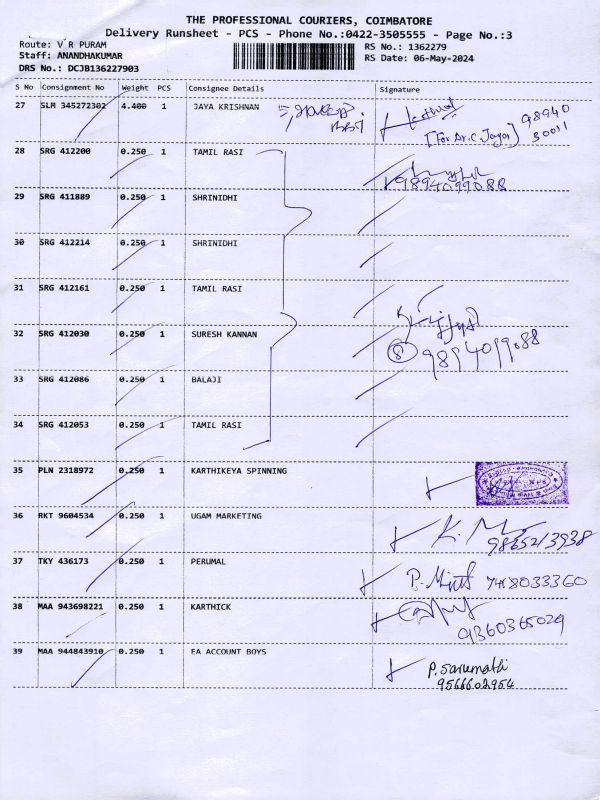 THE PROFESSIONAL COURIERS, COIMBATORE
Delivery Runsheet - PCS - Phone No.:0422-3505555 - Page No.:3
Route: V R PURAM
Staff: ANANDHAKUMAR
DRS No.: DCJB136227903
RS No.: 1362279
RS Date: 06-May-2024
S No Consignment No Weight PCS Consignee Details Signature
27 SLM 345272302 4.400 1 JAYA KRISHNAN
98940
[For Ar.C. Jaya] 30011
28 SRG 412200 0.250 1 TAMIL RASI
9894099088
29 SRG 411889 0.250 1 SHRINIDHI
30 SRG 412214 0.250 1 SHRINIDHI
31 SRG 412161 0.250 1 TAMIL RASI
32 SRG 412030 0.250 1 SURESH KANNAN
8
33 SRG 412086 0.250 1 BALAJI
34 SRG 412053 0.250 1 TAMIL RASI
35 PLN 2318972 0.250 1 KARTHIKEYA SPINNING
36 RKT 9604534 0.250 1 UGAM MARKETING
9865213938
37 TKY 436173 0.250 1 PERUMAL
7418033360
38 MAA 943698221 0.250 1 KARTHICK
9360365029
39 MAA 944843910 0.250 1 EA ACCOUNT BOYS P. Sarumathi
9566602954